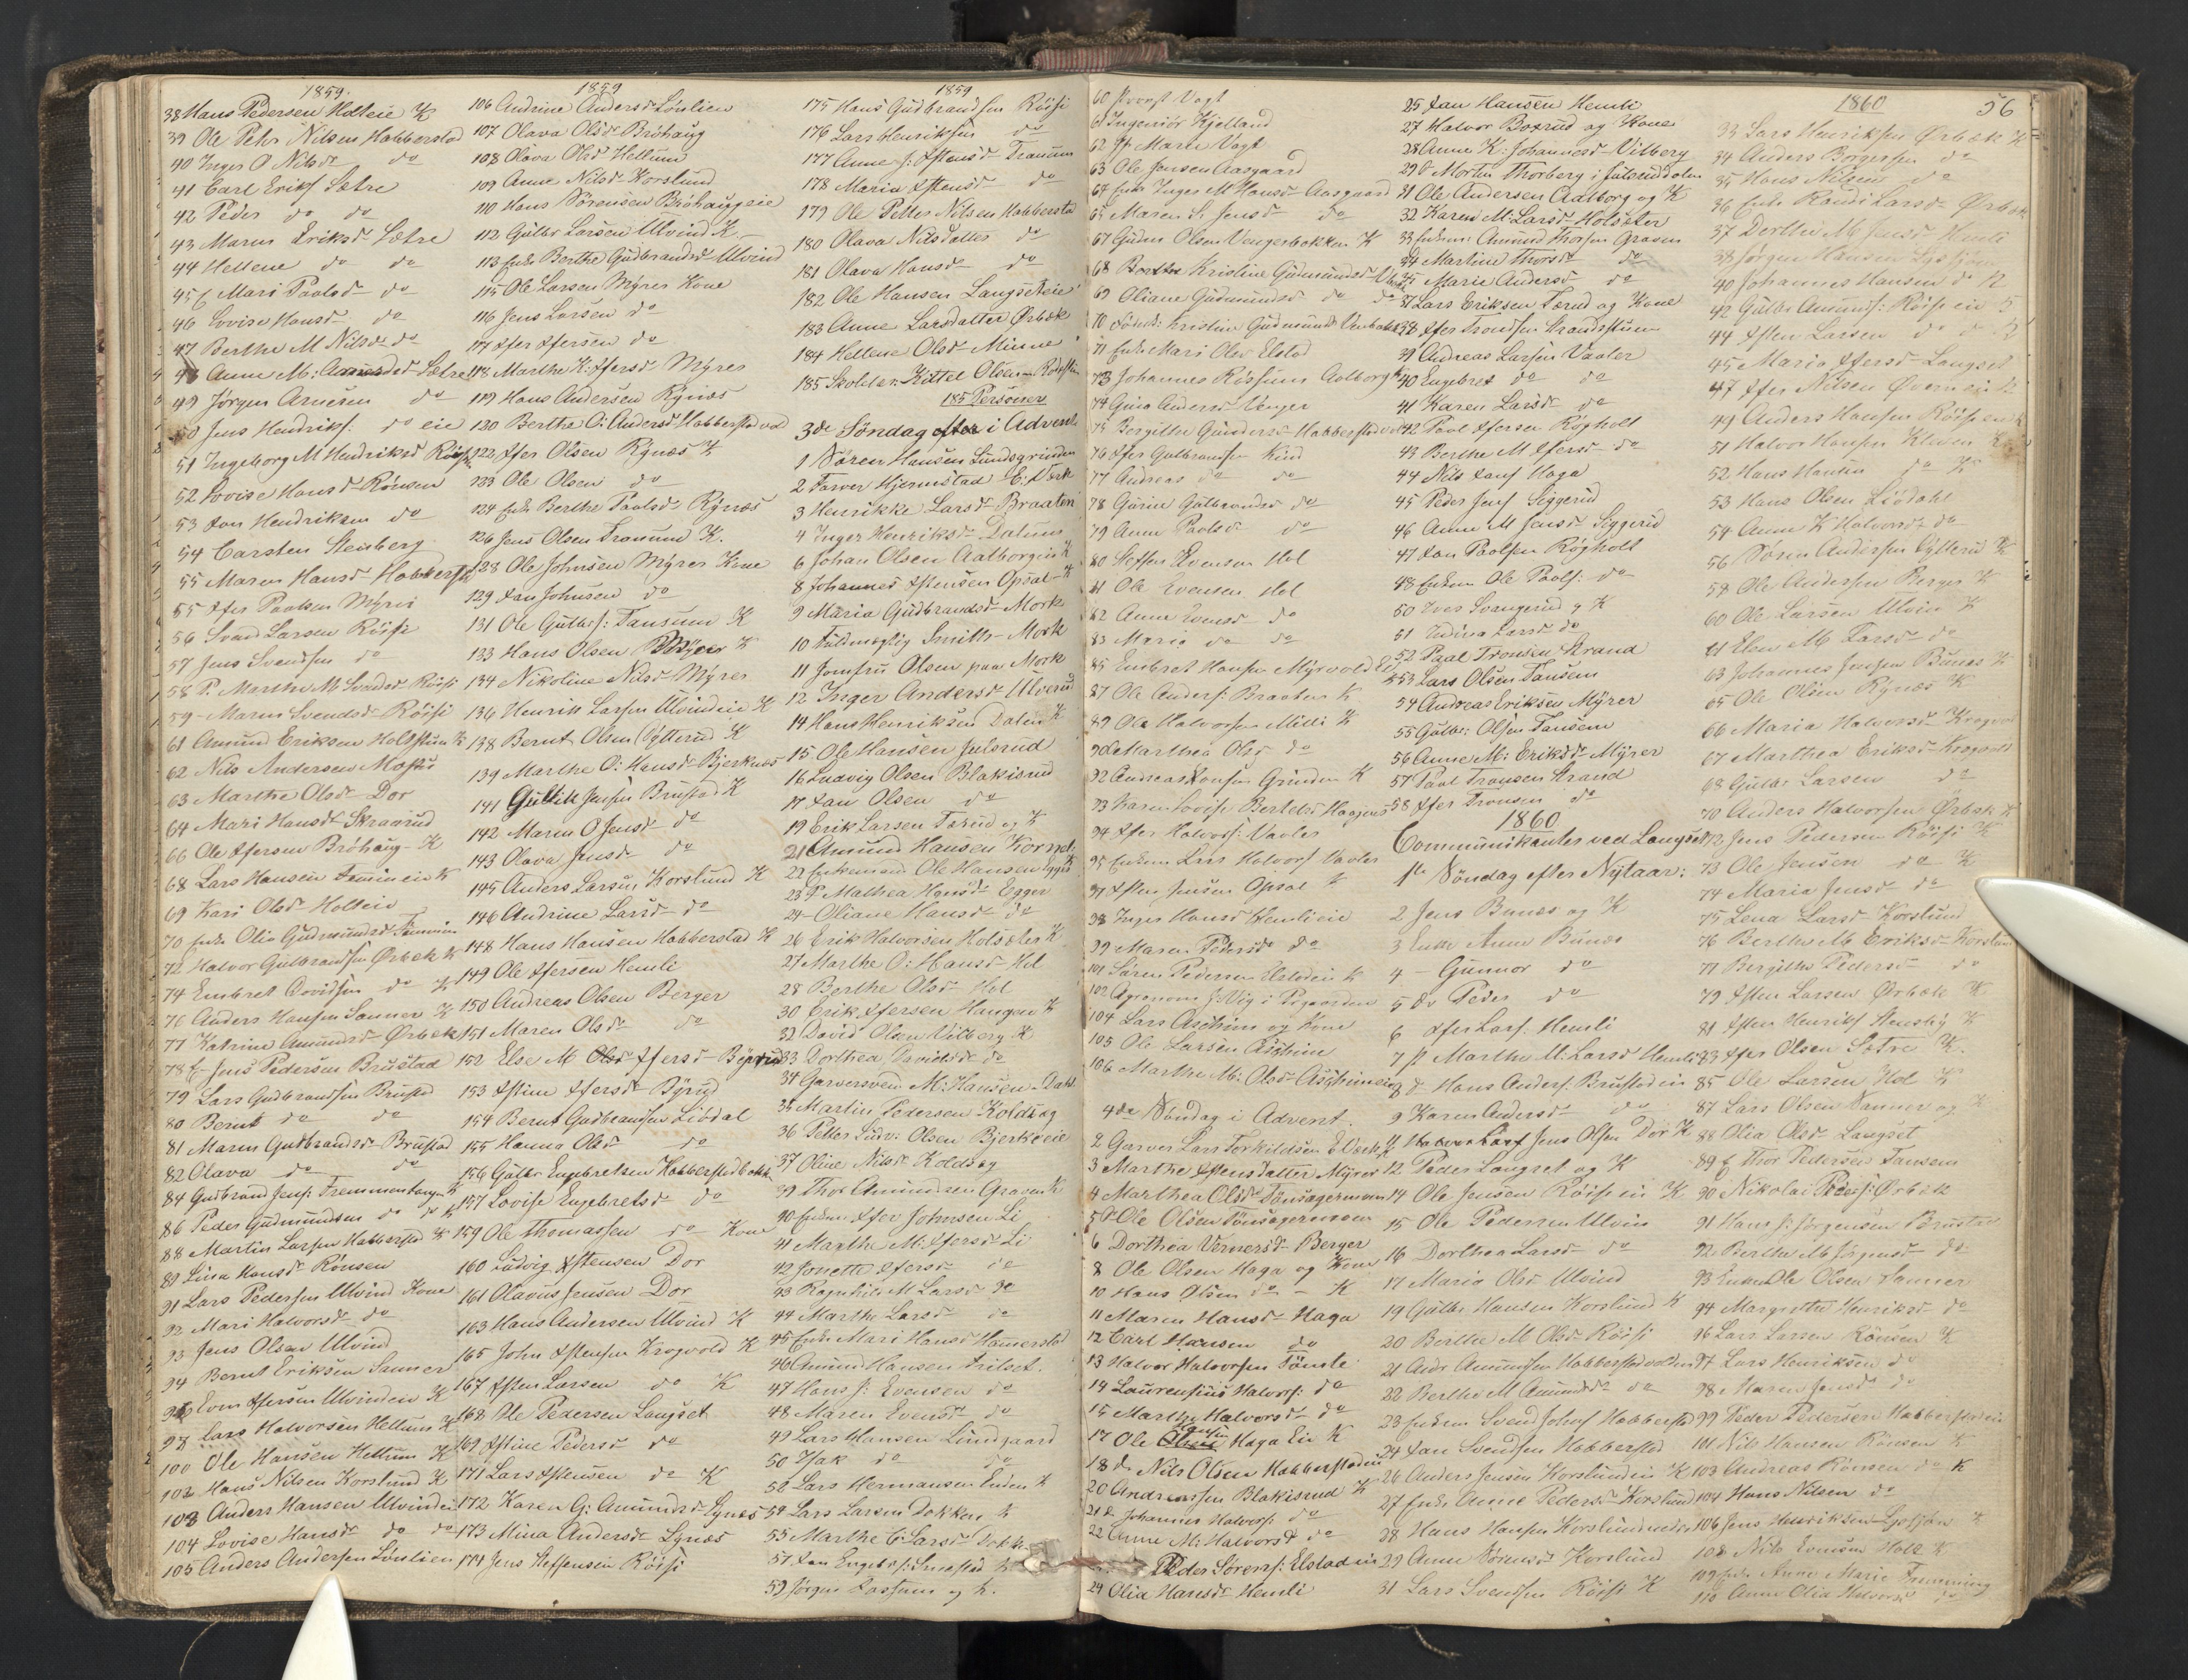 1859.
38 Hans Pedersen Holteie K
39 Ole Pehr Nilsen Habberstad
40 Inger O Nilsdr do
41 Carl Eriks Sætre
42 Peder do do
43 Maren Eriksd Sætre
44 Hellene do do
45 Mari Paalsd do
46 Lovise Hansd do
47 Berthe M Nilsd do
48 Anne M: Sætre
49 Jørgen Arnesen do
50 Jens Hendriks: do eie
51 Ingeborg M Hendriksd
52 Lovise Hansd Rønsen
53 Jan Hendriksen do
54 Carsten Stenberg
55 Maren Hansd Habberst
55 Afer Paalsen Myrer
56 Svend Larsen Röisi
57 Jens Svendsen do
58 P. Marthe M Svendsd Röisi
59 Maren Svendsd Röisi
61 Amund Eriksen Holtstuen K
62 Nils Andersen
63 Marthe Olsd Dor
64 Mari Hansd Skraarud
66 Ole Afersen Bröhaug K
68 Lars Hansen K
69 Kari Olsd Holteie
70 Enke Olia Gudmundsd
72 Halvor Gulbrandsen Ørbæk K
74 Embret Davidsen do K
76 Anders Hansen Sanner K
77 Katrine Amundsd Ørbek
78 Jens Pedersen Brustad
79 Lars Gudbrandsen Brustad
80 Bernt do do
81 Maren Gudbrandsd Brustad
82 Olava do do
84 Gudbrand Jens:
86 Peder Gudmundsen do do K
88 Martin Larsen Habberstad K
89 Lina Hansd Rönsen
91 Lars Pedersen Ulvind Kone
92 Mari Halvorsd do
93 Jens Olsen Ulvind
94 Bernt Eriksen Sanner
96 Even Afersen Ulvindeie K
98 Lars Halvorsen Hellum K
100 Ole Hansen Hellum K
102 Hans Nilsen Korslund K
103 Anders Hansen Ulvindeie
104 Lovise Hansd do do
105 Anders Andersen Lönlien
1859
106 Andrine Andersd Lönlien
107 Olava Olsd Bröhaug
108 Olava Olsd Hellum
109 Anne Nilsd Korslund
110 Hans Sörensen Bröhaugeie
112 Gulbr Larsen Ulvind K
113 Enke Berthe Gudbrandsd Ulvind
115 Ole Larsen Myrer Kone
116 Jens Larsen do
117 Afer Afersen do
118 Marthe K: Afersd Myres
119 Hans Andersen Rynæs
120 Berthe O: Andersd Habberstad
122 Afer Olsen Rynæs K
123 Ole Olsen do
124 Enke Berthe Paalsd Rynæs
126 Jens Olsen K.
128 Ole Johnsen Myrer Kone
129 Jan Johnsen do
131 Ole Gulbr: Tansum K
133 Hans Olsen Myrer K
134 Nikoline Nilsd Myrer
136 Henrik Larsen Ulvindeie K
138 Bernt Olsen Gytterud K
139 Marthe O: Hansd Bjerknæs
141 Gullik Jensen Brustad K
142 Maren O Jensd do
143 Olava Jensd do
145 Anders Larsen Korslund K
146 Andrine Larsd do
148 Hans Hansen Habberstad K
149 Ole Afersen Hemli
150 Andreas Olsen Berger
151 Maren Olsdr do
152 Else M Afersd
153 Astine Afersd Byrud
154 Bernt Gudbrandsen Liödal
155 Hanna Olsd do
156 Gulbr Engebretsen Habberstadbak
157 Lovise Engebretsd do
159 Ole Thomassen do Kone
160 Ludvig Astensen Dor
161 Olavus Jensen Dor
163 Hans Andersen Ulvind K
165 John Astensen Krogvold K
167 Asten Larsen do K
168 Ole Pedersen Langset
169 Astine Pedersd do
171 Lars Astensen do K
172 Karen G: Amundsd Lynæs
173 Mina Andersd Lynæs
174 Jens Steffensen Röisi
1859
175 Hans Gudbrandsen Röisi
176 Lars Henriksen do
177 Anne J: Astensd Tranum
178 Maria Astensd do
179 Ole Petter Nilsen Habbersta
180 Olava Nilsdatter do
181 Olava Hansd do
182 Ole Hansen Langseteie
183 Anne Larsdatter Ørbek
184 Hellene Olsd Minne
185 Skolelær: Kittel Olsen
185 Personer
3de Söndag i Advent
1 Sören Hansen Lundsgrinden
2 Farver Hjermstad E: Værk
3 Henrikke Larsd Braaten
4 Inger Henriksd Dalum
6 Johan Olsen Aalborgeie K
8 Johannes Astensen Opsal K
9 Maria Gudbrandsd Mork
10 Fuldmægtig Smith Mork
11 Jomfru Olsen paa Mork
12 Inger Andersd Ulverud
14 Hans Henriksen Dalen K
15 Ole Hansen Julsrud
16 Ludvig Olsen Blakisrud
17 Jan Olsen do
19 Erik Larsen Tærud og K
21 Amund Hansen
22 Enkemand Ole Hansen
23 P Mathea Hansd Egger
24 Oliane Hansd do
26 Erik Halvorsen Holseter K
27 Marthe O: Hansd Hol
28 Berthe Olsd Hol
30 Erik Afersen Haugen K
32 David Olsen Vilberg K
33 Dorthea Davidsd do
34 Garversvend M: Hansen Dahl
35 Martin Pedersen Koldsag
36 Petter Ludv: Olsen Bjerkeeie
37 Oline Nilsd Koldsag
39 Thor Amundsen Graven K
40 Enkem Afer Johnsen Li
41 Marthe M: Afersd Li
42 Jonette Afersd do
43 Ragnhild M Larsd do
44 Marthe Larsd do
45 Enke Mari Hansd Hammerstad
46 Amund Hansen
47 Hans J: Evensen do
48 Maren Evensd do
49 Lars Hansen Lundgaard
50 Isak do do
52 Lars Hermansen Enden K
54 Lars Larsen Dokken K
55 Marthe E: Larsd Dokken
57 Jan Engebs:
59 Jörgen og K.
60 Provst Vogt
61 Ingeniör Kjelland
62 Fr Marie Vogt
63 Ole Jensen Aasgaard
64 Enke Inger M Hansd Aasgaard
65 Maren S. Jensd do
67 Gudm Olsen Vengerbakken K
68 Berthe Kristine Gudmundsd
69 Oliane Gudmundsd do do
70 Kristine Gudmundsd
71 Enke Mari Olsd Elstad
73 Johannes Aalborg K
74 Gina Andersd Venger
75 Bergithe Gundersd Habberstad
76 Afer Gulbrandsen Kind
77 Andreas do do
78 Gurine Gulbrandsd do
79 Anne Paalsd do
80 Steffen Evensen Hol
81 Ole Evensen Hol
82 Anne Evensd do
83 Maria do do
85 Embret Hansen Myrvold
87 Ole Anders: Braaten K
89 Ole Halvorsen Midli K
90 Marthea Olsd do
92 Andreas Grinden K
93 Karen Lovise Bertelsd
94 Afer Halvors: Vaaler
95 Enkem Lars Halvors Vaaler
97 Asten Jensen Opsal K
98 Inger Hansd Hemlieie
99 Maren Pedersd do
101 Sören Pedersen Elstadeie K
102 Agronom
104 Lars Aschim og Kone
105 Ole Larsen Aschim
106 Marthe M: Olsd Aschimeie
4de Söndag i Advent.
2 Garver Lars Torkildsen
3 Marthe Astensdatter Myrer
4 Marthea Olsd Tönsagermoen
5 Ole Olsen Tönsagermoen
6 Dorthea Vernersd Berger
8 Ole Olsen Haga og Kone
10 Hans Olsen do K
11 Maren Hansd Haga
12 Carl Hansen do
13 Halvor Halvorsen Tömte
14 Laurensius Halvors: do
15 Marthe Halvorsd do
17 Ole Haga Eie K
18 Nils Olsen Habberstadeie
20 Blakisrud K
21 Johannes Halvors: do
22 Anne M: Halvorsd do
Peder Sörens: Elstadeie
24 Olia Hansd Hemli
25 Jan Hansen Hemli
27 Halvor Boxrud og Kone
28 Anne K: Johannesd Vilberg
29 Morten Thorberg i Julsruddalen
31 Ole Andersen Aalborg og K
32 Karen M: Larsd Holseter
33 Enkem: Amund Thorsen Graven
34 Martine Thorsd do
35 Marie Andersd do
37 Lars Eriksen Tærud og Kone
38 Afer Tronsen Strandstuen
39 Andreas Larsen Vaaler
40 Engebret do do
41 Karen Larsd do
42 Paal Afersen Rögholt
43 Berthe M Afersd do
44 Nils Haga
45 Peder Jens Seggerud
46 Anne M Jensd Seggerud
47 Jan Paalsen Rögholt
48 Enkem Ole Paals: do
50 Iver Svangerud og K
51 Indina Larsd do
52 Paal Tronsen Strand
53 Lars Olsen Tansem
54 Andreas Eriksen Myrer
55 Gulbr: Olsen Tansem
56 Anne M: Eriksdr Myrer
57 Paal Tronsen Strand
58 Afer Tronsen do
1860
Communikanter ved Langset
1ste Söndag efter Nytaar:
2 Jens Bunæs og K
3 Enke Anne Bunæs
4 Gunnor do
5 Peder do
6 Afer Lars: Hemli
7 P Marthe M: Larsd Hemli
8 d Hans Anders: Brustadeie
9 Karen Andersd do
11 Jens Olsen Dor K
12 Peder Langset og K
14 Ole Jensen Röiseie K
15 Ole Pedersen Ulvin
16 Dorthea Larsd do
17 Maria Olsd Ulvind
19 Gulbr Hansen Korslund K
20 Berthe M Olsd Röisi
21 Andr Amundsen Habberstad
22 Berthe M Amundsd do
23 Enkem Svend Johns Habberstad
24 Jan Svendsen Habberstad
26 Anders Jensen Korslundeie K
27 Enke Anne Pedersd Korslund
28 Hans Hansen Korslund
29 Anne Sörensd Korslund
31 Lars Svendsen Röisi K
1860
56
33 Lars Henriksen Ørbæk K
34 Anders Borgersen do
35 Hans Nilsen do
36 Enke Randi Larsd Ørbæk
37 Dorthe M Jensd Hemli
38 Jörgen Hansen
40 Johannes Hansen do K
42 Gulbr Amunds: Röiseie
44 Asten Larsen do do K
45 Maria Afersd Langset
47 Afer Nilsen K
49 Anders Hansen Röiseie K
51 Halvor Hansen Kleven K
52 Hans Hansen do K
53 Hans Olsen Liödahl
54 Anne K Halvorsd do
56 Sören Andersen Gytterud K
58 Ole Andersen Berger K
60 Ole Larsen Ulvin K
61 Elen M Larsd do
63 Johannes Jensen Bunæs K
65 Ole Olsen Rynæs K
66 Maria Halvorsd Krogvold
67 Marthea Eriksd Krogvold
68 Gulbr Larsen do
70 Anders Halvorsen Ørbæk K
72 Jens Pedersen Röisi K
73 Ole Jensen do K
74 Maria Jensd do
75 Lena Larsd Korslund
76 Berthe M Eriksd Korslund
77 Bergithe Pedersd do
79 Asten Larsen Ørbæk K
81 Asten Henriks K
83 Afer Olsen Sætre K.
85 Ole Larsen Hol K
87 Lars Olsen Sanner og K
88 Olia Olsd Langset
89 Thor Pedersen Tansem
90 Nikolai Peders: Ørbæk
91 Hans J: Jörgensen Brustad
92 Berthe M Jörgensd do
93 Enkem Ole Olsen Sanner
94 Margrethe Henriksd do
96 Lars Larsen Rönsen K
97 Lars Henriksen do
98 Maren Jensd do
99 Peder Pedersen Habberstadeie
101 Nils Hansen Rönsen K
103 Andreas Rönsen do K
104 Hans Nilsen do
106 Jens Henriksen K
108 Nils Evensen Holt K
109 Enke Anne Marie
110 Anne Olia Halvorsd do